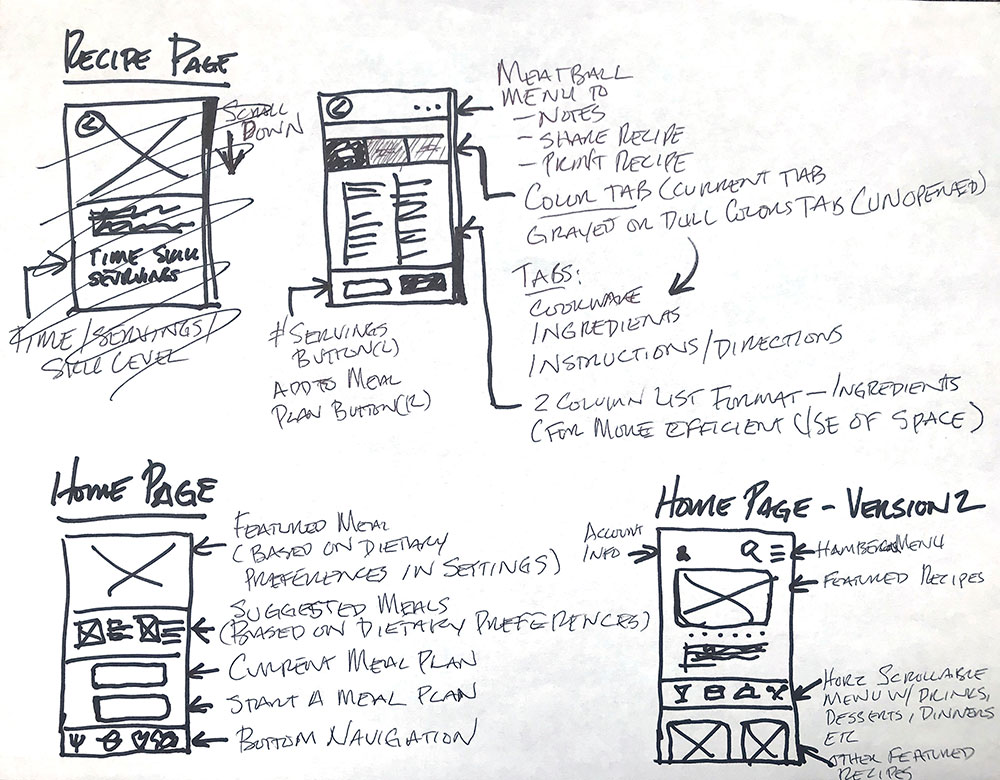 RECIPE PAGE
SCROLL
DOWN
TIME SKILL
SERVINGS
TIME/SERVINGS/
SKILL LEVEL
MEATBALL
MENU TO
- NOTES
- SHARE RECIPE
- PRINT RECIPE
COLOR TAB (CURRENT TAB
GRAYED OR DULL COLORS TAB (UNOPENED)
TABS:
COOKWARE
INGREDIENTS
INSTRUCTIONS/DIRECTIONS
# SERVINGS
BUTTON(L)
ADD TO MEAL
PLAN BUTTON(R)
2 COLUMN LIST FORMAT - INGREDIENTS
(FOR MORE EFFICIENT USE OF SPACE)
HOME PAGE
FEATURED MEAL
(BASED ON DIETARY
PREFERENCES IN SETTINGS)
SUGGESTED MEALS
(BASED ON DIETARY PREFERENCES)
CURRENT MEAL PLAN
START A MEAL PLAN
BOTTOM NAVIGATION
HOME PAGE - VERSION 2
ACCOUNT
INFO
HAMBERG MENU
FEATURED RECIPES
HORZ SCROLLABLE
MENU W/ DRINKS,
DESSERTS, DINNERS
ETC
OTHER FEATURED
RECIPES